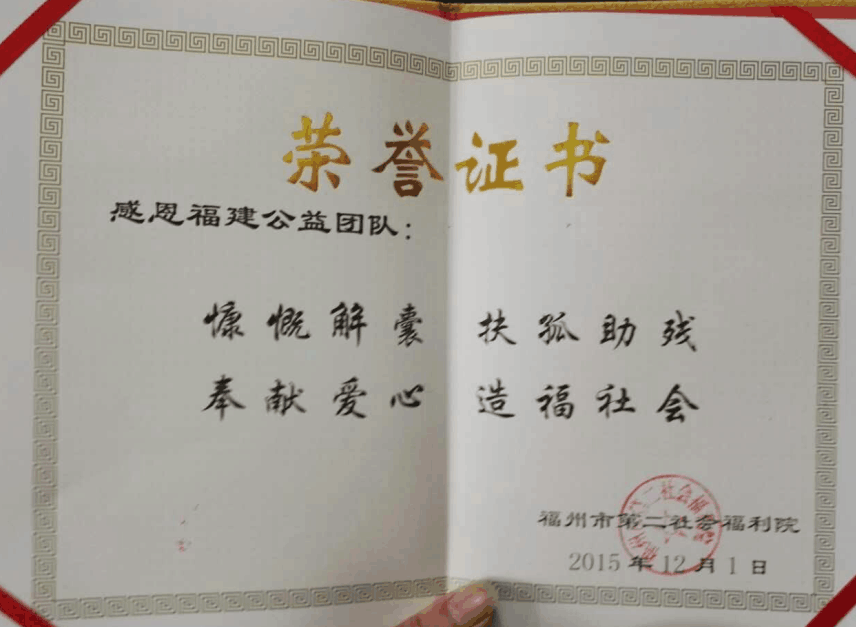 荣誉证书
感恩福建公益团队：
慷慨解囊 扶孤助残
奉献爱心 造福社会
福州市第二社会福利院
2015年12月1日